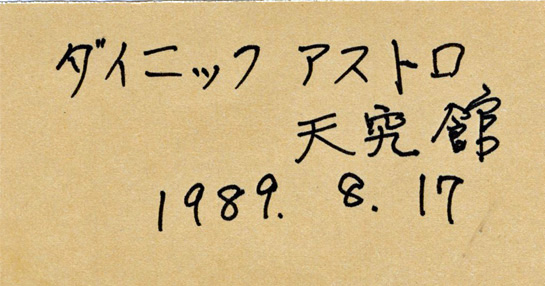 ダイニック アストロ
天究館
1989. 8. 17